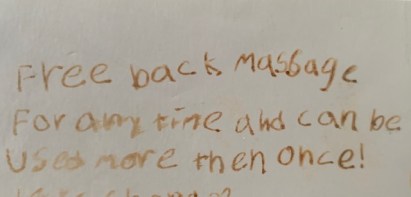 Free back massage
For any time and can be
Used more then once!